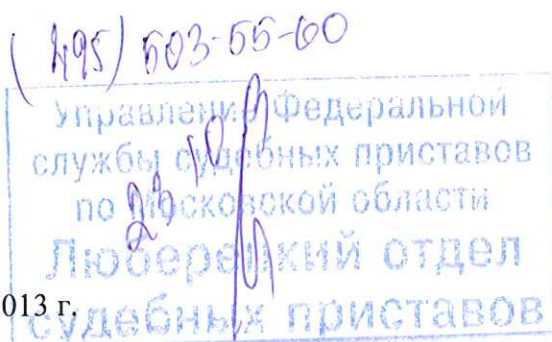 (495) 503-55-60
Управление Федеральной
службы судебных приставов
по Московской области
Люберецкий отдел
судебных приставов
013 г.